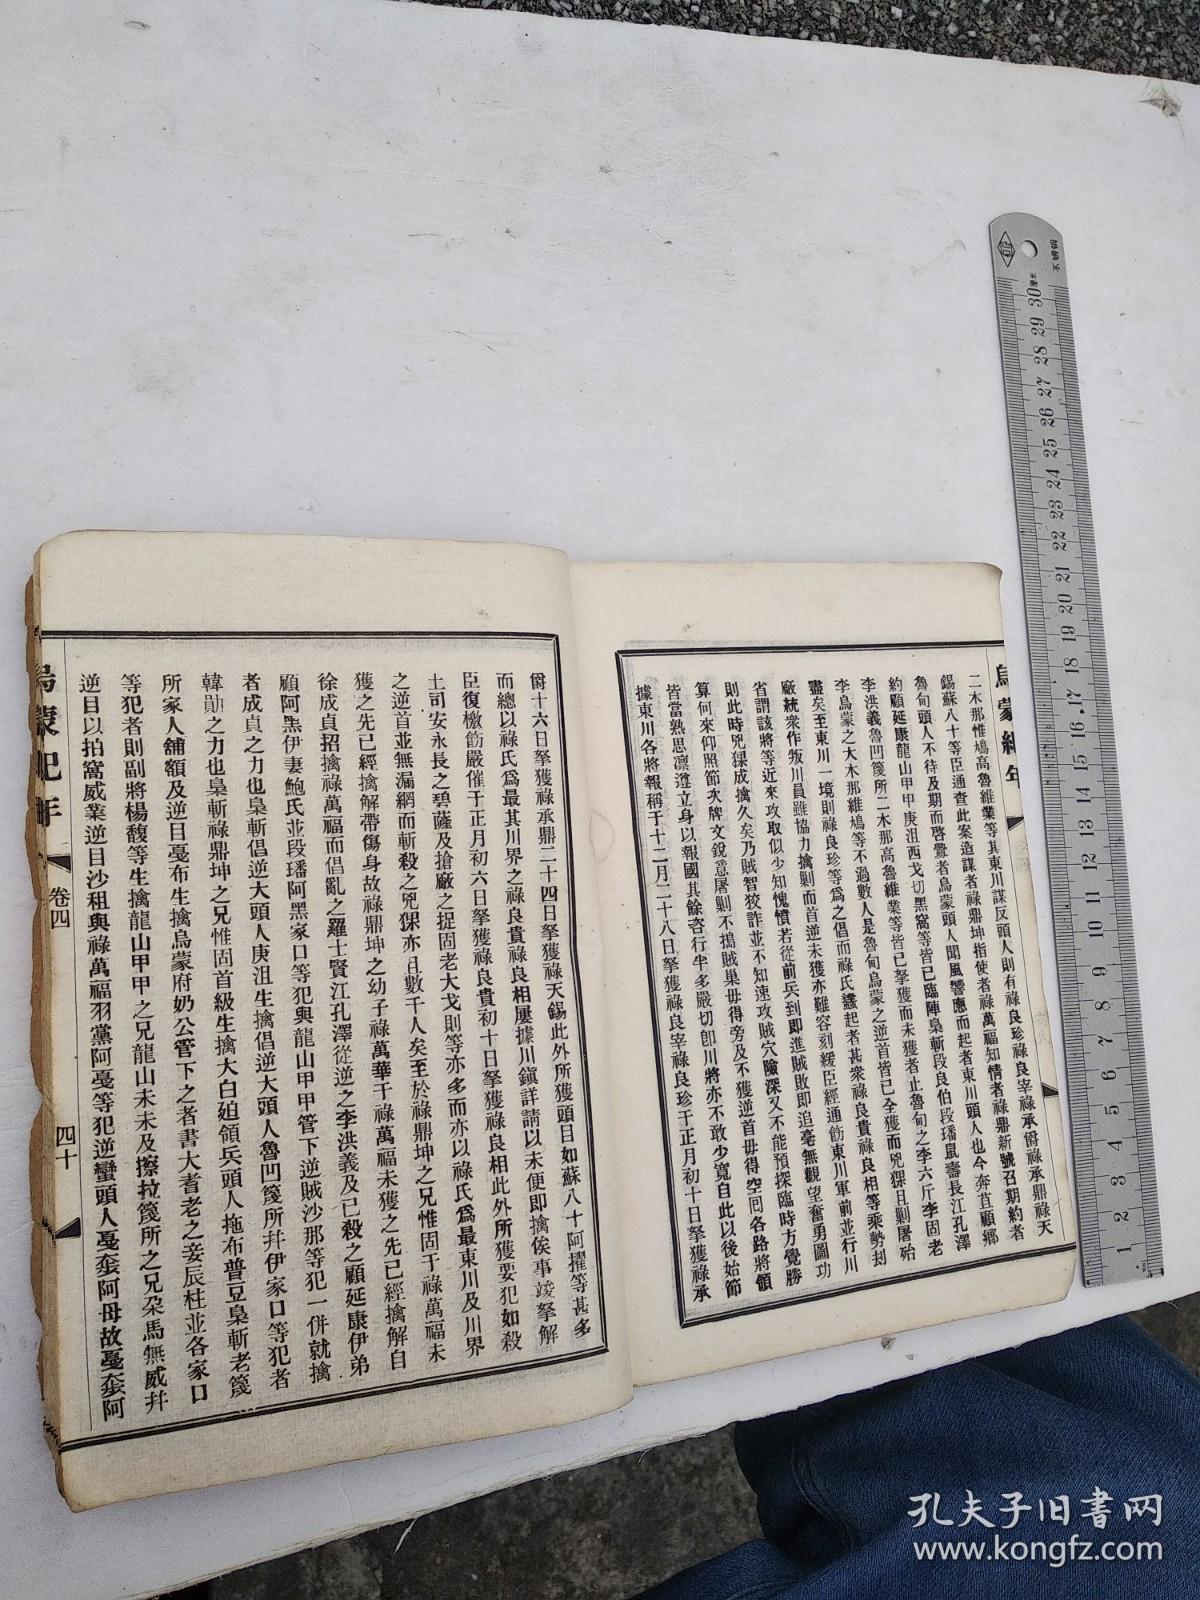 烏蒙紀年
二木那惟鳩高魯維業等其東川謀反頭人則有祿良珍祿良宰祿承爵祿承鼎祿天
錫蘇八十等臣通查此案造謀者祿鼎坤指使者祿萬福知情者祿鼎新號召期約者
魯甸頭人不待及期而啓釁者烏蒙頭人聞風響應而起者東川頭人也今奔苴顧鄉
約顧延康龍山甲甲庚沮西戈切黑窩等皆已臨陣梟斬段良伯段璠鼠壽長江孔澤
李洪義魯凹篾所二木那高魯維業等皆已拏獲而未獲者止魯甸之李六斤李固老
李烏蒙之大木那維鳩等不過數人是魯甸烏蒙之逆首皆已全獲而兇猓且剿屠殆
盡矣至東川一境則祿良珍等爲之倡而祿氏蠭起者甚衆祿良貴祿良相等乘勢刦
廠統衆作叛川員雖協力擒剿而首逆未獲亦難容刻緩臣經通飭東川軍前並行川
省謂該將等近來攻取似少知愧憤若從前兵到即進賊敗即追毫無觀望奮勇圖功
則此時兇猓成擒久矣乃賊智狡詐並不知速攻賊穴險深又不能預探臨時方覺勝
算何來仰照節次牌文銳意屠剿不搗賊巢毋得旁及不獲逆首毋得空回各路將領
皆當熟思凛遵立身以報國其餘咨行半多嚴切卽川將亦不敢少寬自此以後始節
據東川各將報稱于十二月二十八日拏獲祿良宰祿良珍于正月初十日拏獲祿承
爵十六日拏獲祿承鼎二十四日拏獲祿天錫此外所獲頭目如蘇八十阿擢等甚多
而總以祿氏爲最其川界之祿良貴祿良相屢據川鎭詳請以未便即擒俟事竣拏解
臣復檄飭嚴催于正月初六日拏獲祿良貴初十日拏獲祿良相此外所獲要犯如殺
土司安永長之碧薩及搶廠之捉固老大戈則等亦多而亦以祿氏爲最東川及川界
之逆首並無漏網而斬殺之兇猓亦且數千人矣至於祿鼎坤之兄惟固于祿萬福未
獲之先已經擒解帶傷身故祿鼎坤之幼子祿萬華于祿萬福未獲之先已經擒解自
徐成貞招擒祿萬福而倡亂之羅士賢江孔澤從逆之李洪義及已殺之顧延康伊弟
顧阿黑伊妻鮑氏並段璠阿黑家口等犯與龍山甲甲管下逆賊沙那等犯一併就擒
者成貞之力也梟斬倡逆大頭人庚沮生擒倡逆大頭人魯凹篾所幷伊家口等犯者
韓勛之力也梟斬祿鼎坤之兄惟固首級生擒大白廹領兵頭人拖布普豆梟斬老篾
所家人舖額及逆目戛布生擒烏蒙府奶公管下之者書大耆老之妾辰柱並各家口
等犯者則副將楊馥等生擒龍山甲甲之兄龍山未未及擦拉篾所之兄朶馬無威幷
逆目以拍窩威業逆目沙租與祿萬福羽黨阿戛等犯逆蠻頭人戛蒤阿母故戛蒤阿
烏蒙紀年
卷四
四十
30 29 28 27 26 25 24 23 22 21 20 19 18 17 16 15 14 13 12 11 10 9 8 7 6 5 4 3 2 1
孔夫子旧书网
www.kongfz.com